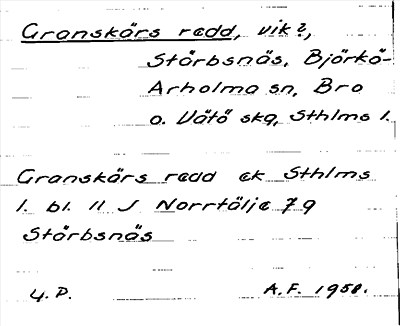 Granskärs redd, vik?,
Stårbsnäs, Björkö-
Arholma sn, Bro
o. Vätö skg, Sthlms l.
Granskärs redd ek Sthlms
l. bl. 11 J Norrtälje 79
Stårbsnäs
4. D. A.F. 1958.